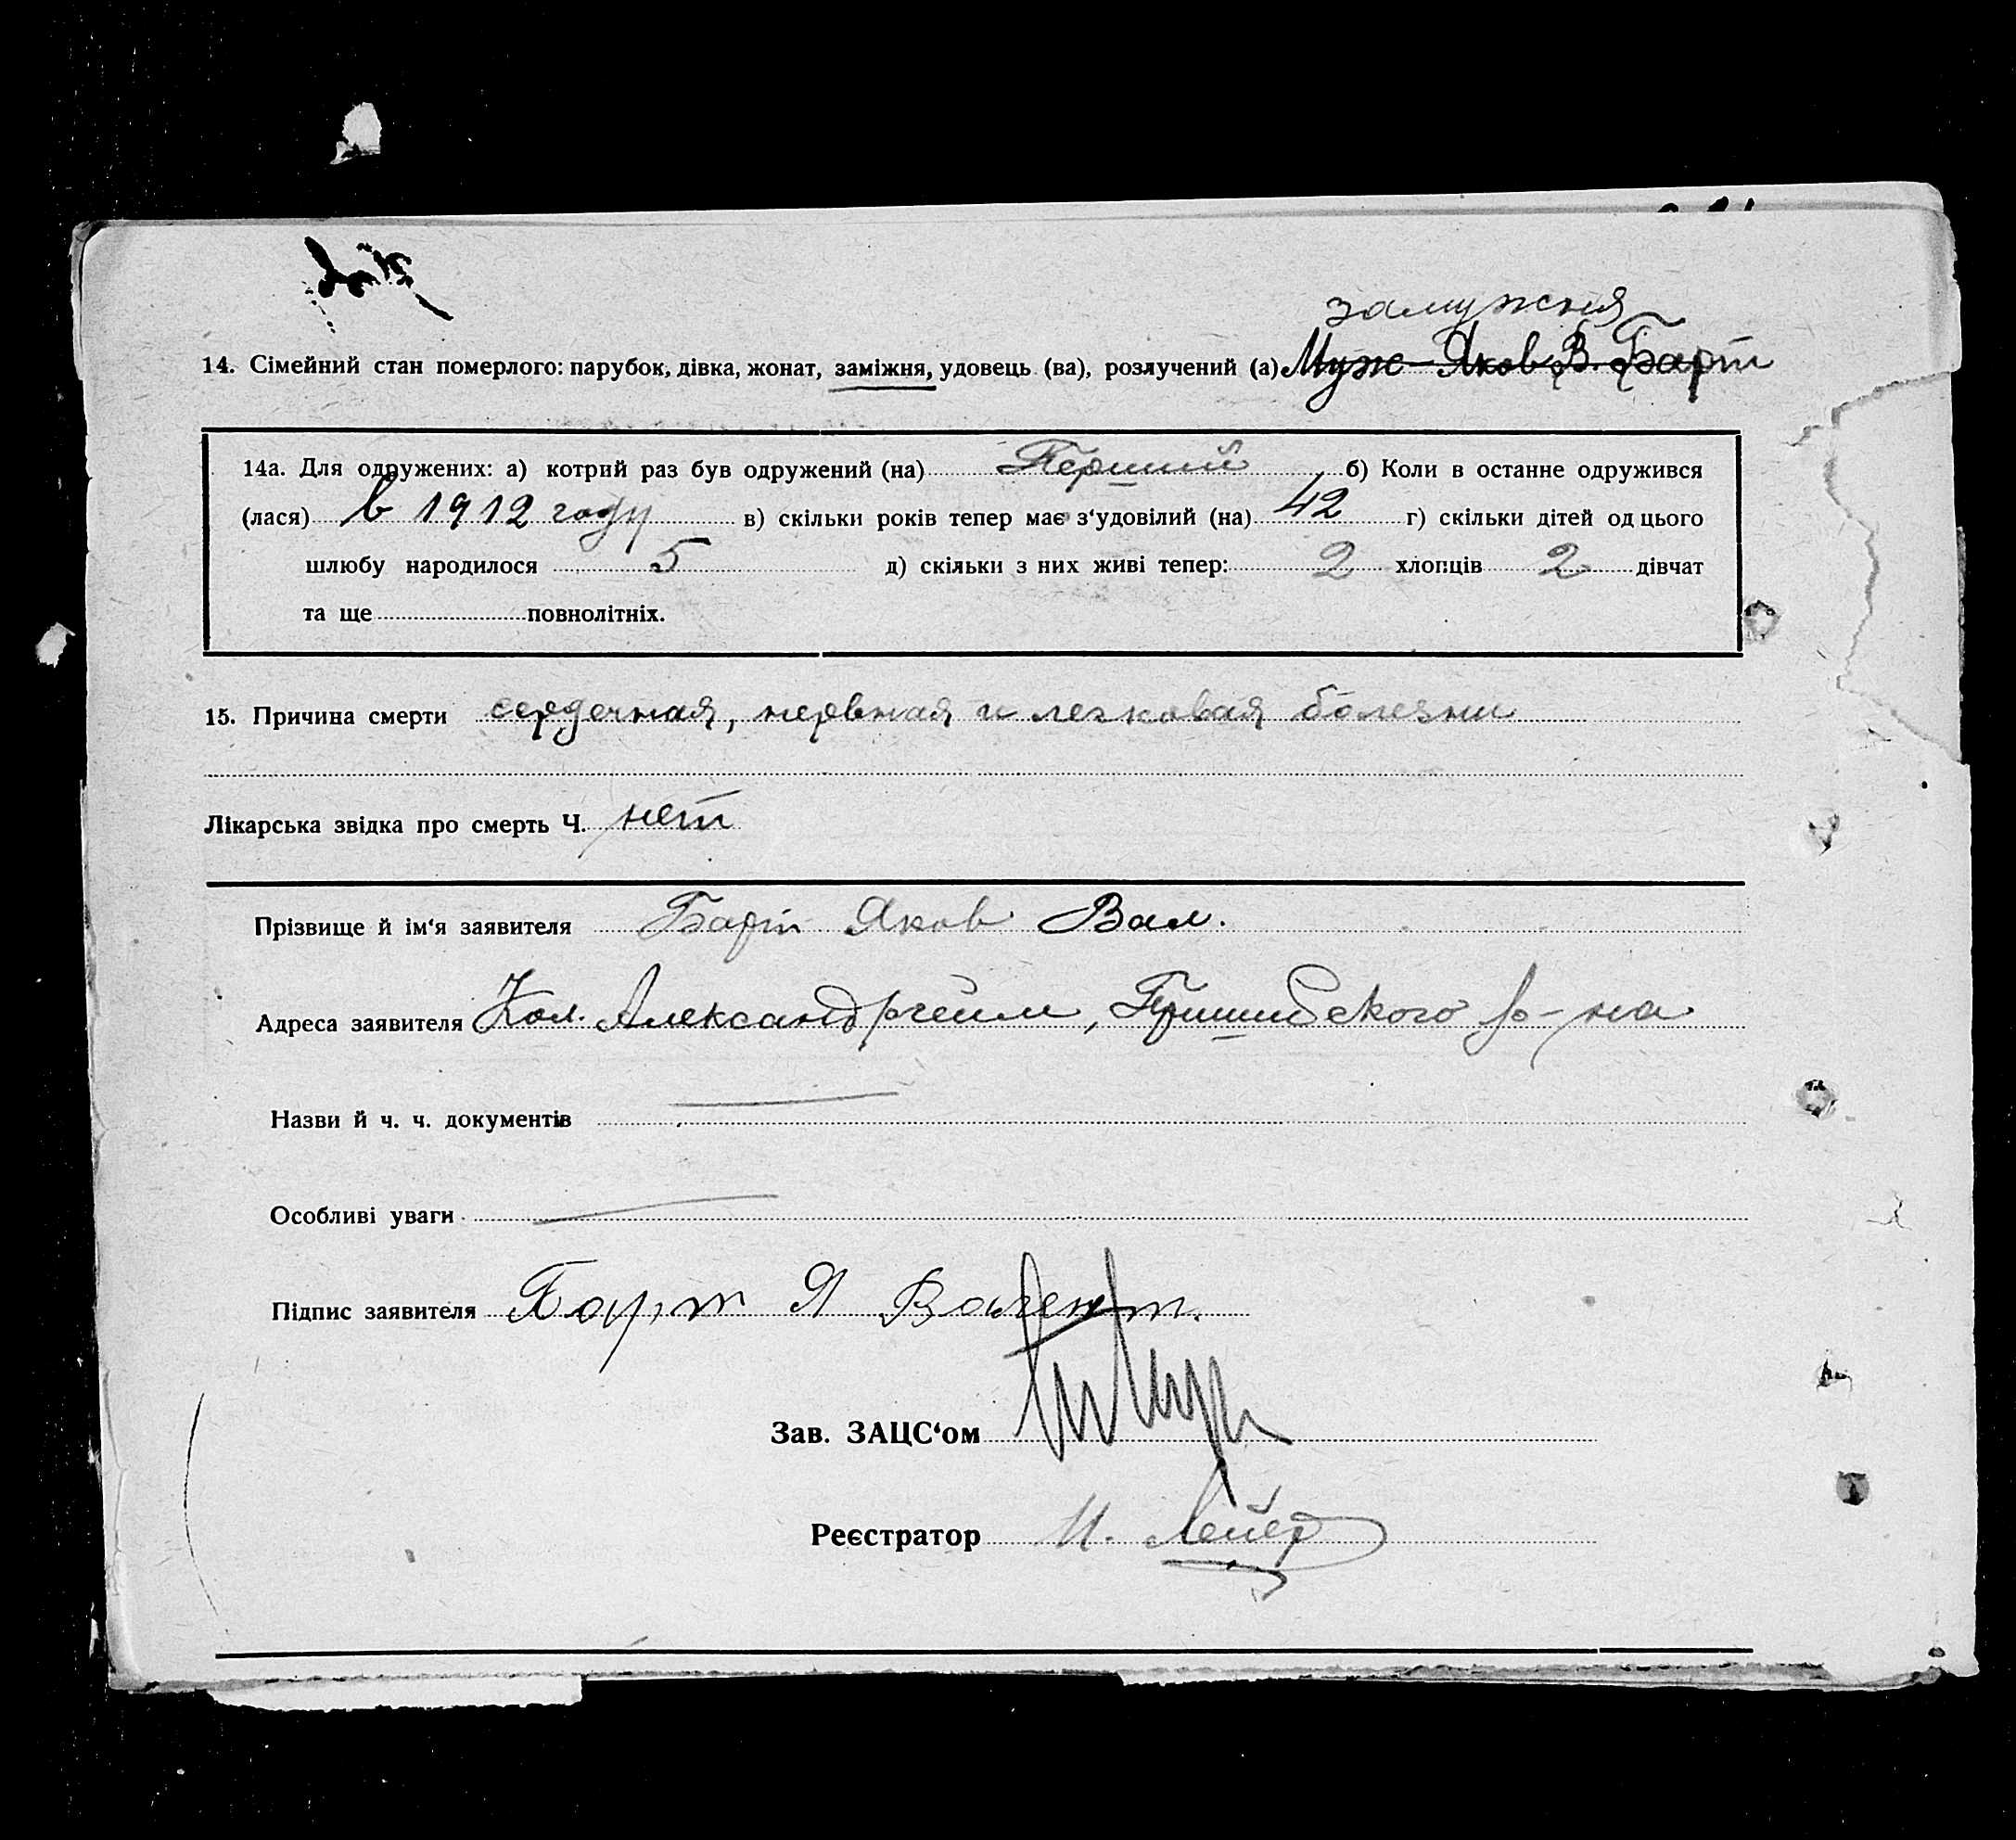 замужня
14. Сімейний стан померлого: парубок, дівка, жонат, заміжня, удовець (ва), розлучений (а) Муж – Яков В. Барт
14а. Для одружених: а) котрий раз був одружений (на) Первый б) Коли в останне одружився
(лася) в 1912 году в) скільки років тепер має з‘удовілий (на) 42 г) скільки дітей од цього
шлюбу народилося 5 д) скільки з них живі тепер: 2 хлопців 2 дівчат
та ще повнолітніх.
15. Причина смерти сердечная, нервная и легковая болезни
Лікарська звідка про смерть Ч. нет
Прізвище й ім‘я заявителя Барт Яков Вал.
Адреса заявителя Кол. Александргейм, Пришибского р-на
Назви й ч. ч. документів
Особливі уваги
Підпис заявителя Барт Я Валент.
Зав. ЗАЦС‘ом
Реєстратор И. Лейер